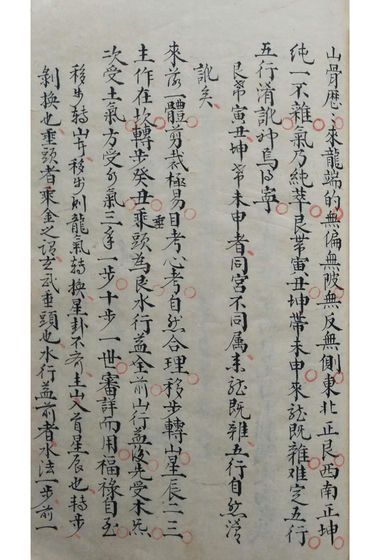 山骨歷々來龍端的無偏無陂無反無側東北正艮西南正坤
純一不雜氣乃純萃艮帶寅丑坤帶未申來龍既雜难定五行
五行淆訛神焉得寧
艮帶寅丑坤帶未申者同宮不同属來龍既雜五行自然淆
訛矣
來落一體剪裁極易目考心考自然合理移步轉山星辰二三
主作在坎轉步癸丑乘垂頭為艮水行益全前山行益後先受木炁
次受土氣方受刃氣三年一步十步一世審詳而用福禄自至
移步轉山者移步則龍氣轉換星卦不齐主山入首星辰也轉步
剝換也垂頭者乘金之謂玄武垂頭也水行益前者水法一步前一